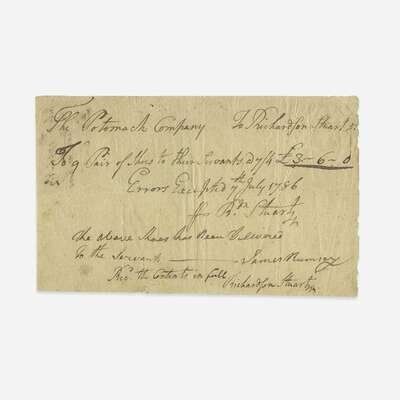 The Potomack Company To Richardson Stuart Dr
To 9 Pair of Shoes to their Servants @ 7/4 £3-6-0
Errors Excepted 7th July 1786
Rn Stuart
The above Shoes has Been Delivered
to the Servants James Rumsey
Recd the Contents in full
Richardson Stuart